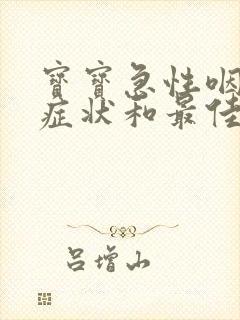 寶寶急性咽
症状和最佳
呂增山